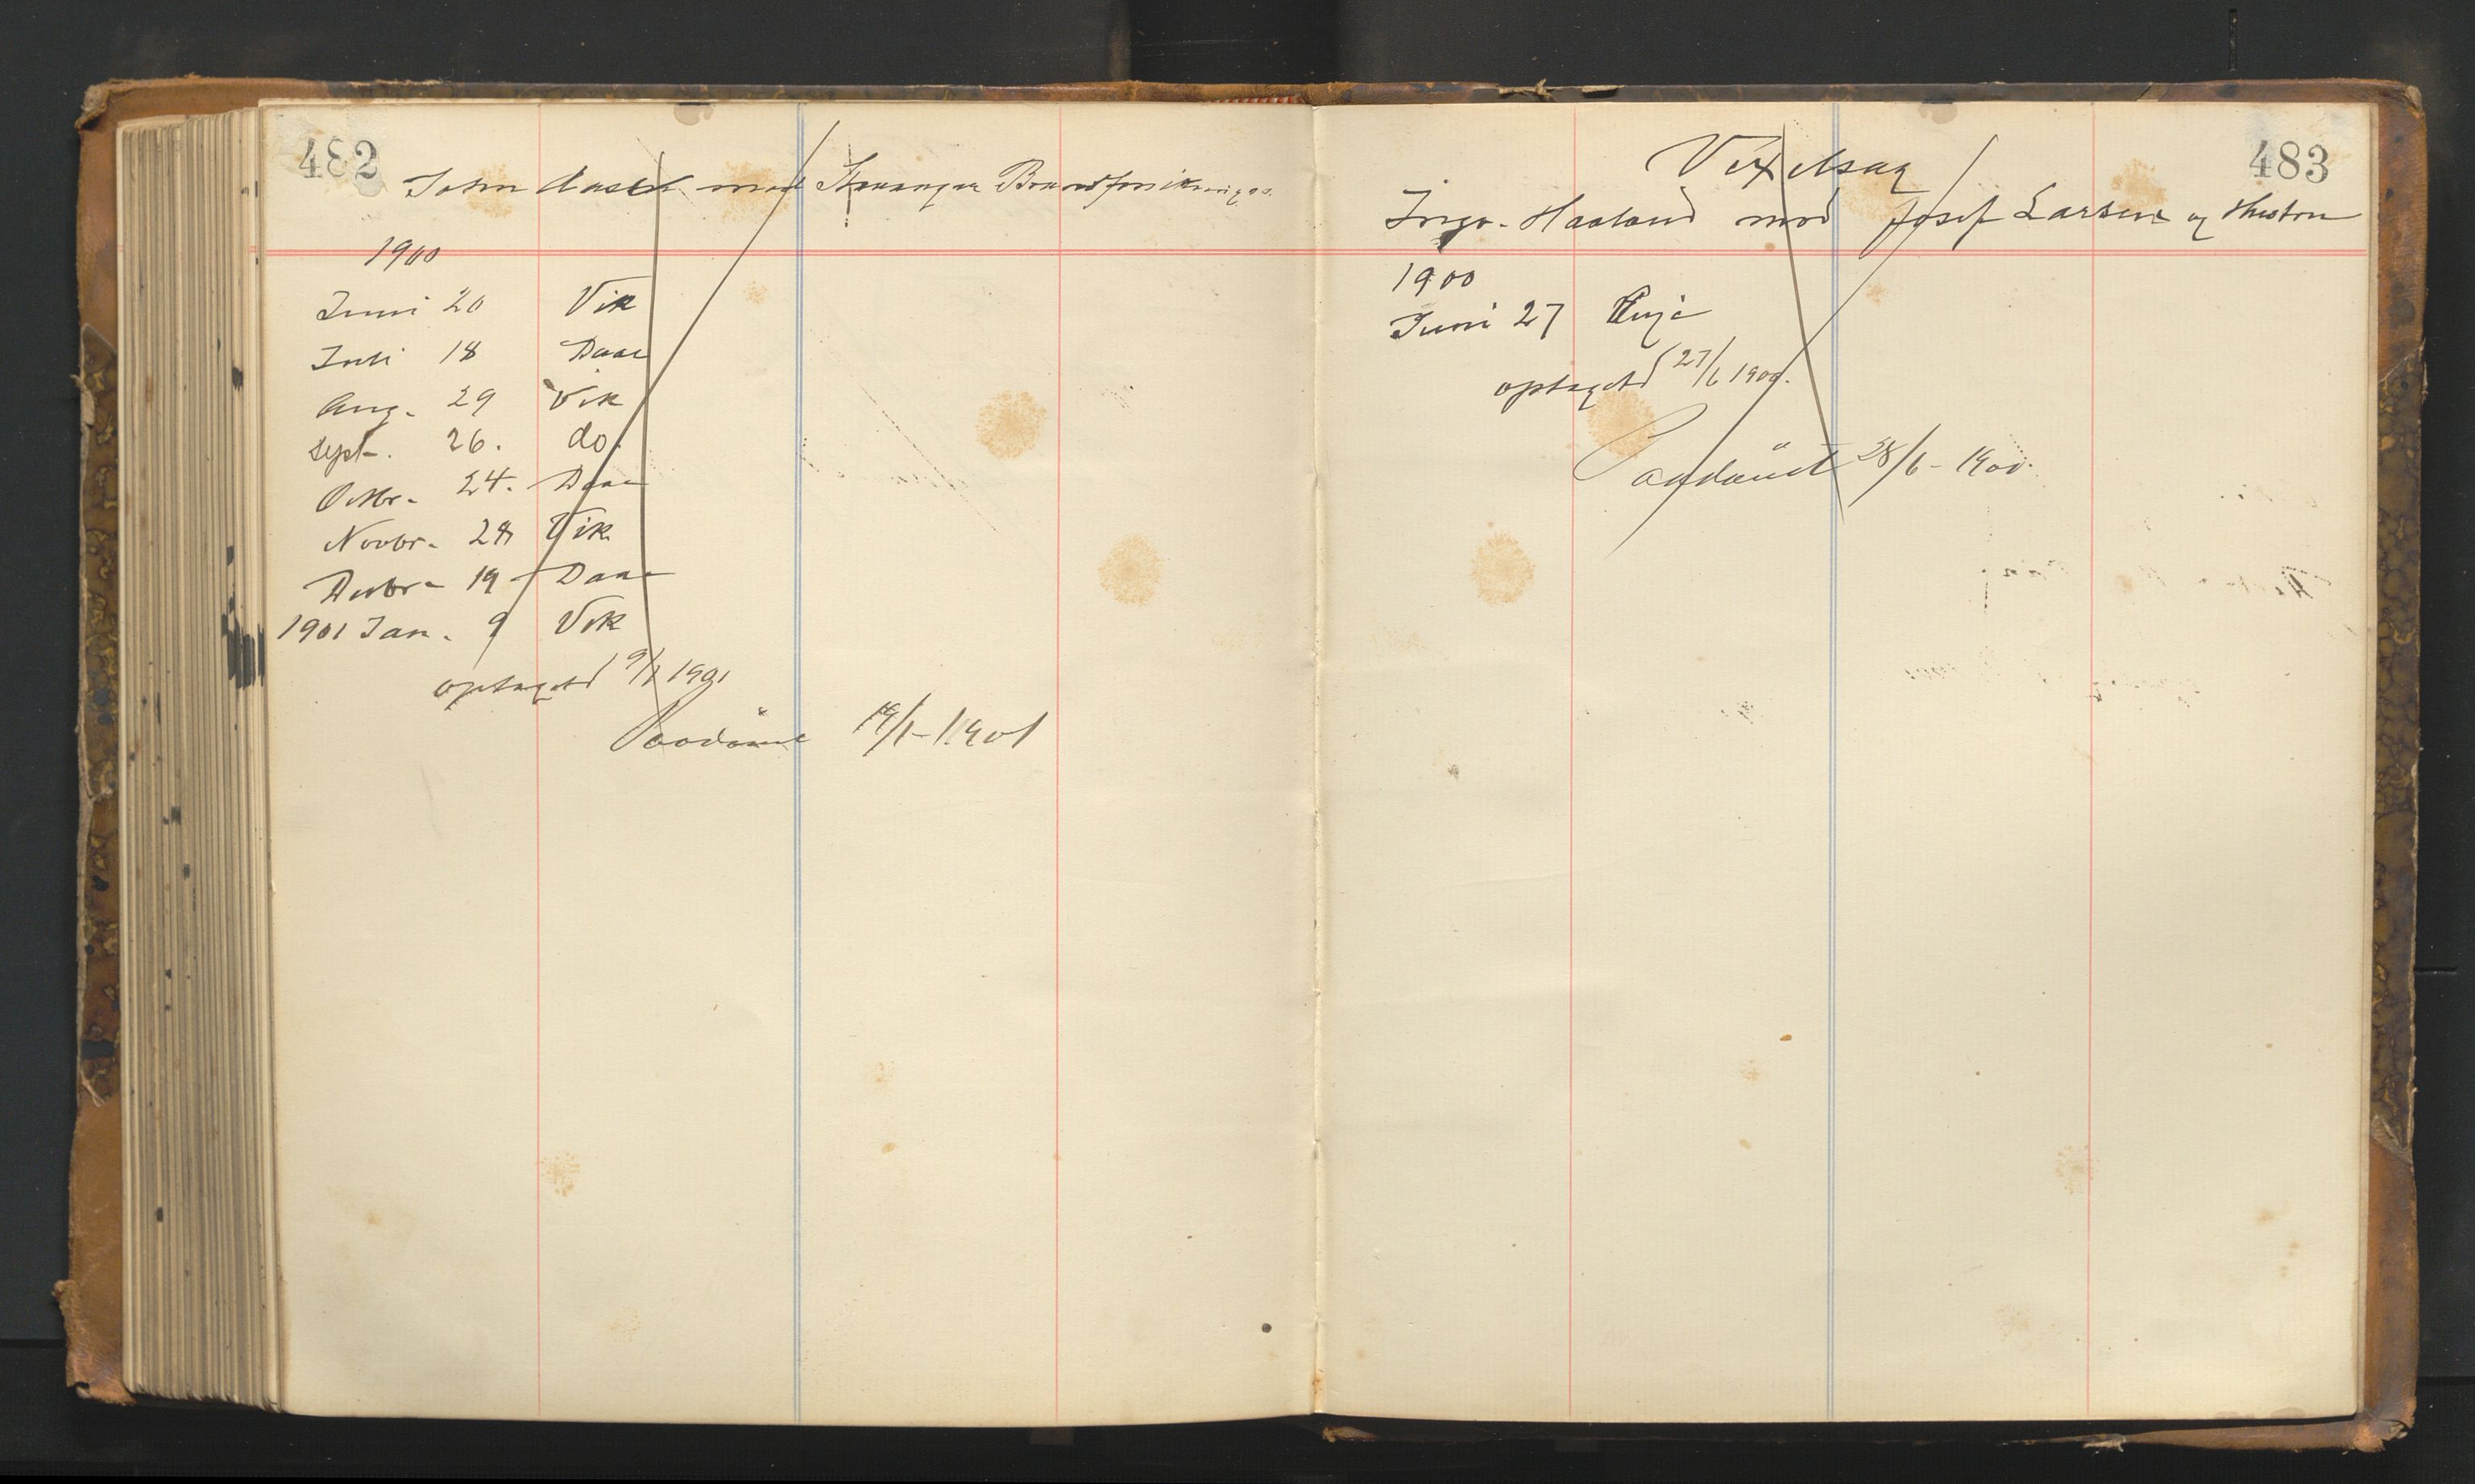 482
John Aasen mod Stavanger Brandforsikringss.
1900
Juni 20 Vik
Juli 18 Daae
Aug. 29 Vik
Sept. 26. do.
Octbr. 24. Daae
Novbr. 28 Vik
Decbr. 19 Daae
1901 Jan. 9 Vik
optaget 9/1 1901
Paadömt 19/1-1901
483
Vexelsag
Ingv. Haaland mod Josef Larsen og Hustru
1900
Juni 27
optaget 27/6 1900.
Paadömt 28/6-1900.